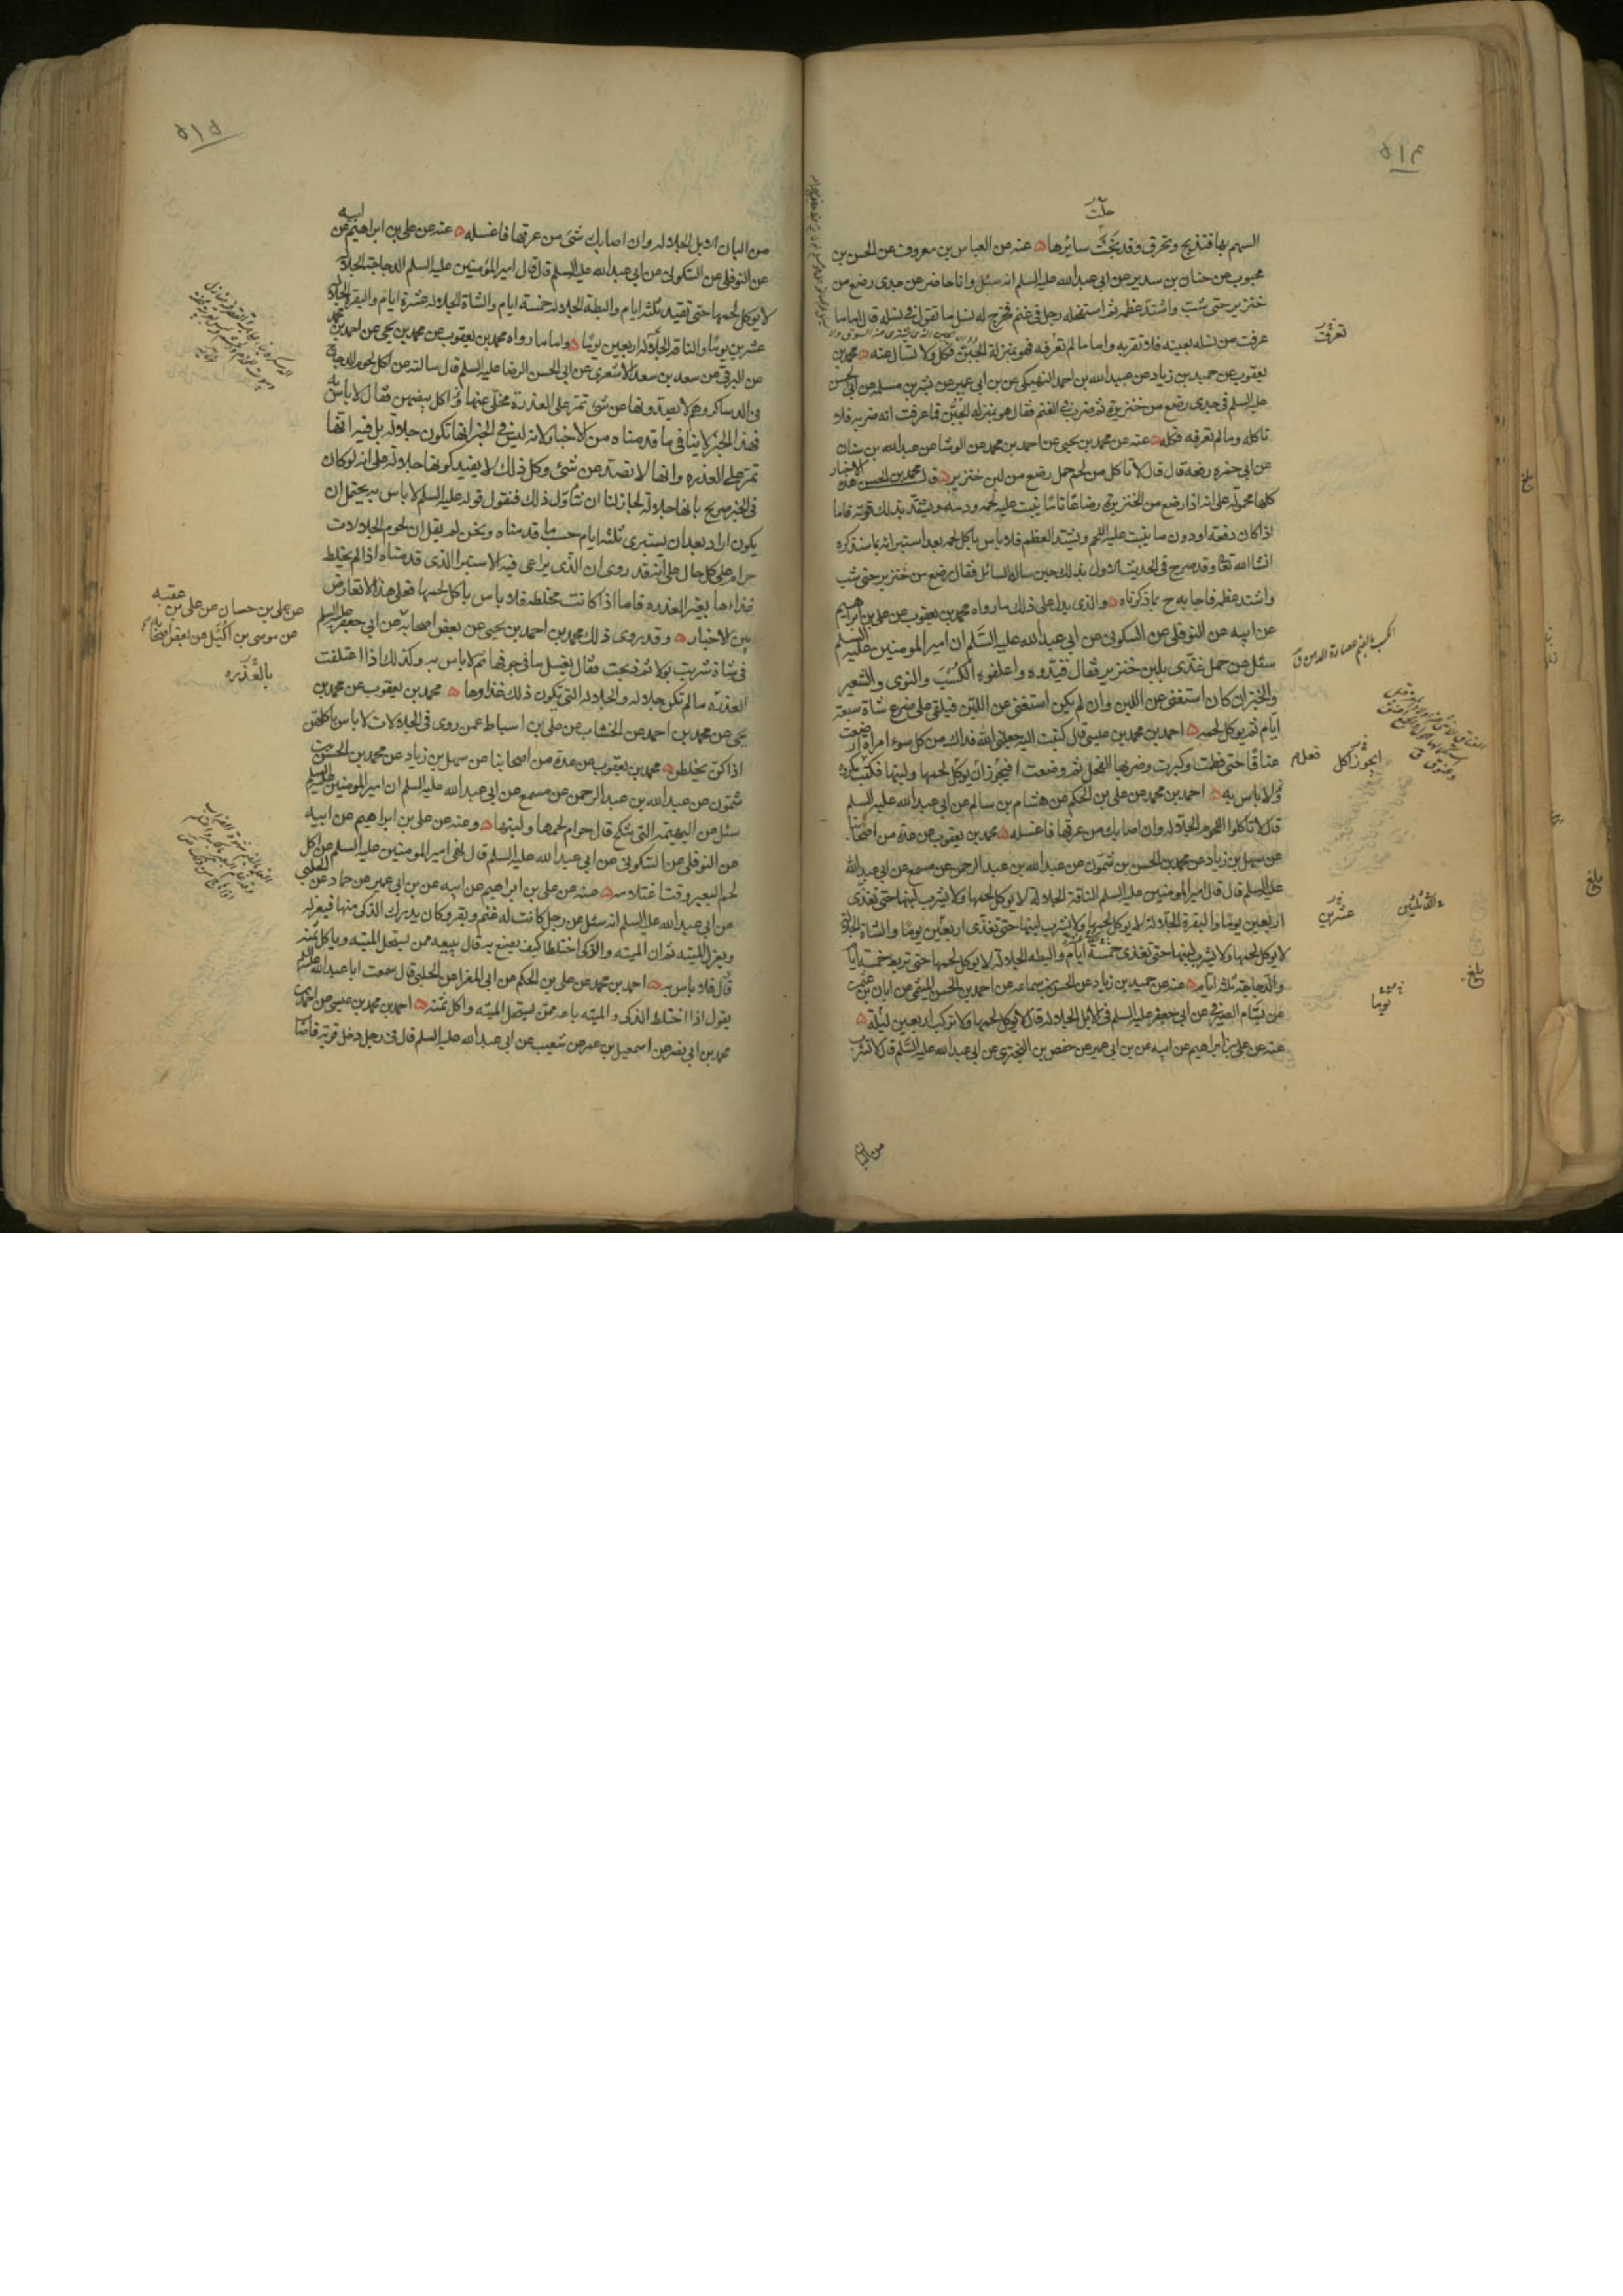 ۵۱۴
حلت
السهم بها فتذبح وتحرق وقد نجت سائرها عنه عن العباس بن معروف عن الحسن بن
محبوب عن حنان بن سدير عن ابي عبدالله عليه السلم انه سئل وانا حاضر عن جدى رضع من
خنزير حتى شب واشتد عظمه ثم استفحله رجل في غنم فخرج له نسل ما تقول في نسله قال اما ما
عرفت من نسله بعينه فلا تقربه واما ما لم تعرفه فهو بمنزلة الجبن فكل ولا تسأل عنه محمد بن
يعقوب عن حميد بن زياد عن عبيد الله بن احمد النهيكى عن بن ابي عمير عن بشر بن مسلمه عن ابي الحسن
عليه السلم في جدى رضع من خنزيرة ثم ضرب في الغنم فقال هو بمنزلة الجبن فما عرفت انه ضربه فلا
تاكله وما لم تعرفه فكله عنه عن محمد بن يحيى عن احمد بن محمد عن الوشا عن عبدالله بن سنان
عن ابي حمزه رفعه قال قال لا تاكل من لحم حمل رضع من لبن خنزير قال محمد بن الحسن هذه الاخبار
كلها محمولة على انه اذا رضع من الخنزيرة رضاعا تاما ينبت عليه لحمه ودمه ويشتد بذلك قوته فاما
اذا كان دفعة او دون ما ينبت عليه اللحم ويشتد العظم فلا باس باكل لحمه بعد استبرائه بما سنذكره
انشا الله تعا وقد صرح في الحديث الاول بذلك حين ساله السائل فقال رضع من خنزير حتى شب
واشتد عظمه فاجابه ح بما ذكرناه والذى يدل على ذلك ما رواه محمد بن يعقوب عن على بن ابراهيم
عن ابيه عن النوفلى عن السكونى عن ابي عبدالله عليه السلم ان امير المومنين عليه السلم
سئل عن حمل غذى بلبن خنزير فقال قيدوه واعلفوه الكسب والنوى والشعير
والخبز ان كان استغنى عن اللبن وان لم يكن استغنى عن اللبن فيلقى على ضرع شاة سبعة
ايام ثم يوكل لحمه احمد بن محمد بن عيسى قال كتبت اليه جعلنى الله فداك من كل سوء امراة ارضعت
عناقا حتى فطمت وكبرت وضربها الفحل ثم وضعت افيجوز ان يوكل لحمها ولبنها فكتب مكروه
ولا باس به احمد بن محمد عن على بن الحكم عن هشام بن سالم عن ابي عبدالله عليه السلم
قال لا تاكلوا اللحوم الجلاله وان اصابك من عرقها فاغسله محمد بن يعقوب عن عدة من اصحابنا
عن سهل بن زياد عن محمد بن الحسن بن شمون عن عبدالله بن عبد الرحمن عن مسمع عن ابي عبدالله
عليه السلم قال قال امير المومنين عليه السلم الناقة الجلاله لا يوكل لحمها ولا يشرب لبنها حتى تغذى
اربعين يوما والبقرة الجلالة لا يوكل لحمها ولا يشرب لبنها حتى تغذى اربعين يوما والشاة الجلالة
لا يوكل لحمها ولا يشرب لبنها حتى تغذى خمسة ايام والبطه الجلالة لا يوكل لحمها حتى تربط خمسة ايام
والدجاجة ثلثه ايام عنه عن حميد بن زياد عن الحسن بن سماعه عن احمد بن الحسن الميثمى عن ابان بن عثمن
عن بسام الصيرفى عن ابي جعفر عليه السلم في الابل الجلاله قال لا يوكل لحمها ولا تركب اربعين ليلة
عنه عن على بن ابراهيم عن ابيه عن بن ابي عمير عن حفص بن البخترى عن ابي عبدالله عليه السلم قال لا تشرب
من البان
تعرفت
ايجوز اكل
تعلم
عشرين
الثلثين
يوما
بلغ
۵۱۵
من البان الابل الجلاله وان اصابك شئ من عرقها فاغسله عنه عن على بن ابراهيم عن ابيه
عن النوفلى عن السكونى عن ابي عبدالله عليه السلم قال قال امير المؤمنين عليه السلم الدجاجة الجلالة
لا يوكل لحمها حتى تقيد ثلثه ايام والبطة الجلاله خمسة ايام والشاة الجلاله عشرة ايام والبقرة الجلالة
عشرين يوما والناقه الجلالة اربعين يوما واما ما رواه محمد بن يعقوب عن محمد بن يحيى عن احمد بن محمد
عن البرقى عن سعد بن سعد الاشعرى عن ابي الحسن الرضا عليه السلم قال سالته عن اكل لحوم الدجاج
في الدساكر وهم لا يصدونها عن شئ تمر على العذرة مخلى عنها واكل بيضهن فقال لا باس به
فهذا الخبر لا ينافى ما قدمناه من الاخبار لانه ليس في الخبر انها تكون جلاله بل فيه انها
تمر على العذره وانها لا تصد عن شئ وكل ذلك لا يفيد كونها جلالة على انه لو كان
في الخبر صريح بانها جلالة لجاز لنا ان نتاول ذلك فنقول قوله عليه السلم لا باس به يحتمل ان
يكون اراد بعد ان يستبرى ثلثه ايام حسب ما قدمناه ونحن لم نقل ان لحوم الجلالات
حرام على كل حال على انه قد روى ان الذى يراعى فيه الاستبرا الذى قدمناه اذا لم يخلط
غذاءها بغير العذره فاما اذا كانت مخلطه فلا باس باكل لحمها فعلى هذا لا تعارض
بين الاخبار وقد روى ذلك محمد بن احمد بن يحيى عن بعض اصحابه عن ابي جعفر عليه السلم
في شاة شربت بولا ثم ذبحت فقال يغسل ما في جوفها ثم لا باس به وكذلك اذا اعتلفت
العذره ما لم تكن جلاله والجلاله التى يكون ذلك غذاوها محمد بن يعقوب عن محمد بن
يحيى عن محمد بن احمد عن الخشاب عن على بن اسباط عمن روى في الجلالات لا باس باكلهن
اذا كن يخلطن محمد بن يعقوب عن عدة من اصحابنا عن سهل بن زياد عن محمد بن الحسن بن
شمون عن عبدالله بن عبد الرحمن عن مسمع عن ابي عبدالله عليه السلم ان امير المومنين عليه السلم
سئل عن البهيمة التى تنكح قال حرام لحمها ولبنها وعنه عن على بن ابراهيم عن ابيه
عن النوفلى عن السكونى عن ابي عبدالله عليه السلم قال نهى امير المومنين عليه السلم عن اكل
لحم البعير وقت اغتلامه عنه عن على بن ابراهيم عن ابيه عن بن ابي عمير عن حماد عن الحلبى
عن ابي عبدالله عليه السلم انه سئل عن رجل كانت له غنم وبقر وكان يدرك الذكى منها فيعزله
ويعزل الميته ثم ان الميته والذكى اختلطا كيف يصنع به قال يبيعه ممن يستحل الميته وياكل ثمنه
قال فلا باس به احمد بن محمد عن على بن الحكم عن ابي المغرا عن الحلبى قال سمعت ابا عبدالله عليه السلم
يقول اذا اختلط الذكى والميته باعه ممن يستحل الميته واكل ثمنه احمد بن محمد بن عيسى عن احمد بن
محمد بن ابي نصر عن اسمعيل بن عمر عن شعيب عن ابي عبدالله عليه السلم قال في رجل دخل قرية فاصاب
عن على بن حسان عن على بن عقبه
عن موسى بن اكيل عن بعض اصحابنا
بالعذره